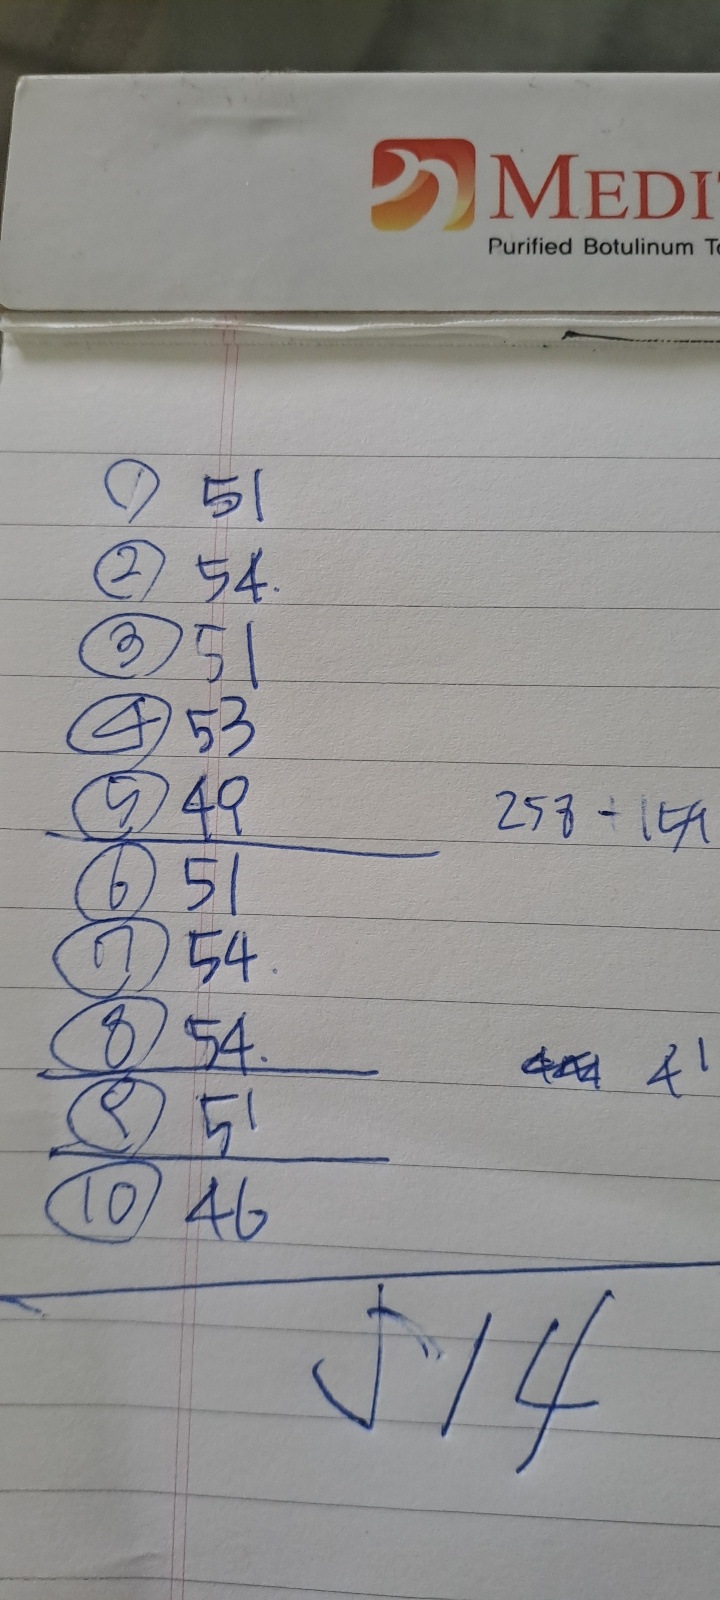 MEDI
Purified Botulinum
① 51
② 54.
③ 51
④ 53
⑤ 49
258 - 159
⑥ 51
⑦ 54.
⑧ 54.
41
⑨ 51
⑩ 46
514